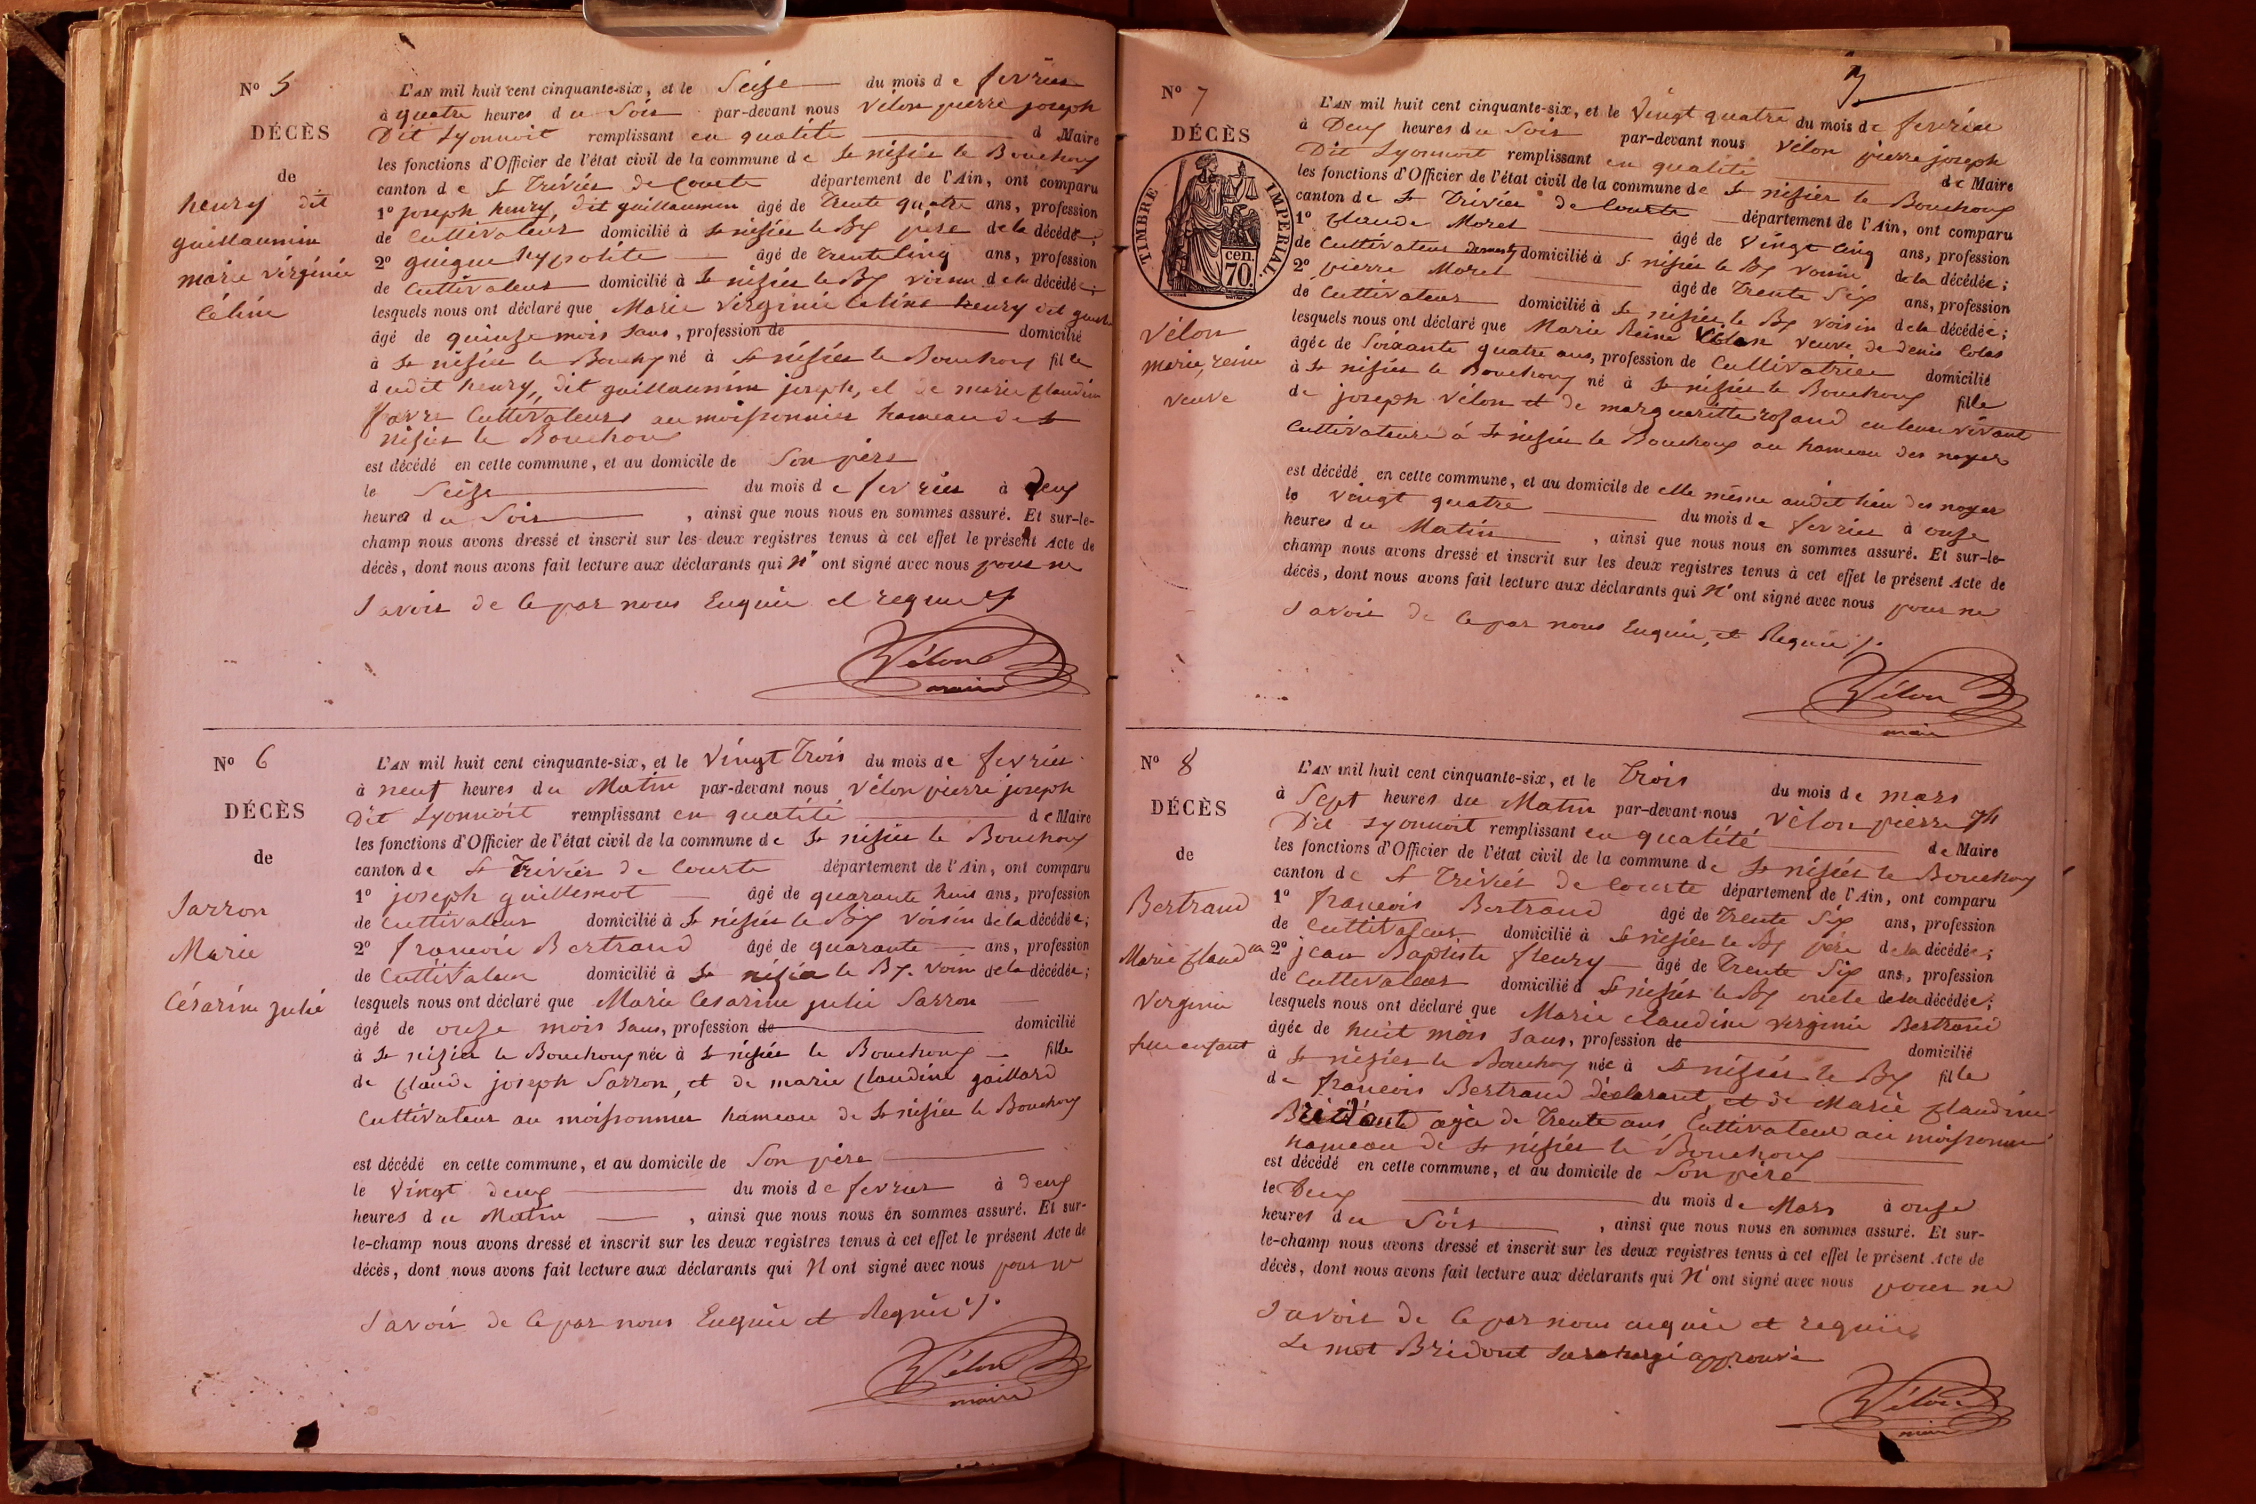 N° 5
DÉCÈS
de
henry dit
guillaumin
marie virginie
Céline
L'AN mil huit cent cinquante-six, et le Seize du mois de fevrier
à quatre heures du Soir par-devant nous Vélon pierre joseph
Dit Lyonnoit remplissant en qualité d Maire
les fonctions d'Officier de l'état civil de la commune de St nisier le Bouchoux
canton de St Trivier de Courte département de l'Ain, ont comparu
1° joseph henry, dit guillaumin âgé de Trente quatre ans, profession
de Cultivateur domicilié à St nisier le Bx père de la décédé;
2° guigue hypolite âgé de trente Cinq ans, profession
de Cultivateur domicilié à St nisier le Bx voisin de la décédée;
lesquels nous ont déclaré que Marie virginie Celine henry dit
âgé de quinze mois Sans, profession de domicilié
à St nisier le Bouchx né à St nisier le Bouchoux fille
dudit henry, dit guillaumin joseph, et de marie Claudine
favre Cultivateurs au moissonnier hameau de St
nisier le Bouchoux
est décédé en cette commune, et au domicile de Son père
le Seize du mois de fevrier à Deux
heures du Soir, ainsi que nous nous en sommes assuré. Et sur-le-
champ nous avons dressé et inscrit sur les deux registres tenus à cet effet le présent Acte de
décès, dont nous avons fait lecture aux déclarants qui n' ont signé avec nous pour ne
Savoir de Ce par nous Enquis et requis
Vélon
maire
N° 6
DÉCÈS
de
Sarron
Marie
Césarine julie
L'AN mil huit cent cinquante-six, et le vingt Trois du mois de fevrier
à neuf heures du Matin par-devant nous Vélon pierre joseph
Dit Lyonnoit remplissant en qualité de Maire
les fonctions d'Officier de l'état civil de la commune de St nisier le Bouchoux
canton de St Trivier de Courte département de l'Ain, ont comparu
1° joseph guillemot âgé de quarante huit ans, profession
de Cultivateur domicilié à St nisier le Bx voisin de la décédée;
2° francois Bertrand âgé de quarante ans, profession
de Cultivateur domicilié à St nisier le Bx voisin de la décédée;
lesquels nous ont déclaré que Marie Césarine julie Sarron
âgé de onze mois Sans, profession de domicilié
à St nisier le Bouchoux née à St nisier le Bouchoux fille
de Claude joseph Sarron, et de marie Claudine gaillard
Cultivateur au moissonnier hameau de St nisier le Bouchoux
est décédé en cette commune, et au domicile de Son père
le vingt deux du mois de fevrier à deux
heures du Matin, ainsi que nous nous en sommes assuré. Et sur-
le-champ nous avons dressé et inscrit sur les deux registres tenus à cet effet le présent Acte de
décès, dont nous avons fait lecture aux déclarants qui N ont signé avec nous pour ne
Savoir de Ce par nous Enquis et Requis
Vélon
maire
7
N° 7
DÉCÈS
TIMBRE IMPERIAL
cen.
70.
Vélon
marie, reine
veuve
L'AN mil huit cent cinquante-six, et le Vingt quatre du mois de fevrier
à Deux heures du Soir par-devant nous Vélon pierre joseph
Dit Lyonnoit remplissant en qualité de Maire
les fonctions d'Officier de l'état civil de la commune de St nisier le Bouchoux
canton de St Trivier de Courte département de l'Ain, ont comparu
1° Claude Morel âgé de vingt Cinq ans, profession
de Cultivateur domicilié à St nisier le Bx voisin de la décédée;
2° pierre Morel âgé de Trente Six ans, profession
de Cultivateur domicilié à St nisier le Bx voisin de la décédée;
lesquels nous ont déclaré que Marie Reine Vélon veuve de denis Colas
âgée de Soixante quatre ans, profession de Cultivatrice domicilié
à St nisier le Bouchoux né à St nisier le Bouchoux fille
de joseph Vélon et de margueritte rozand en leur vivant
Cultivateurs à St nisier le Bouchoux au hameau des noyer
est décédé en cette commune, et au domicile de elle même audit lieu des noyer
le vingt quatre du mois de fevrier à onze
heures du Matin, ainsi que nous nous en sommes assuré. Et sur-le-
champ nous avons dressé et inscrit sur les deux registres tenus à cet effet le présent Acte de
décès, dont nous avons fait lecture aux déclarants qui N' ont signé avec nous pour ne
Savoir de Ce par nous Enquis, et Requis
Vélon
maire
N° 8
DÉCÈS
de
Bertrand
Marie Claudine
Virginie
fille enfant
L'AN mil huit cent cinquante-six, et le Trois du mois de mars
à Sept heures du Matin par-devant nous Vélon pierre jh
Dit Lyonnoit remplissant en qualité de Maire
les fonctions d'Officier de l'état civil de la commune de St nisier le Bouchoux
canton de St Trivier de Courte département de l'Ain, ont comparu
1° francois Bertrand âgé de Trente Six ans, profession
de Cultivateur domicilié à St nisier le Bx père de la décédée;
2° jean Baptiste fleury âgé de Trente Six ans, profession
de Cultivateur domicilié à St nisier le Bx oncle de la décédée;
lesquels nous ont déclaré que Marie Claudine virginie Bertrand
âgée de huit mois Sans, profession de domicilié
à St nisier le Bouchoux née à St nisier le Bx fille
de francois Bertrand déclarant, et de Marie Claudine
Bridont agée de Trente ans Cultivateur au moissonnier
hameau de St nisier le Bouchoux
est décédé en cette commune, et au domicile de Son père
le Deux du mois de Mars à onze
heures du Soir, ainsi que nous nous en sommes assuré. Et sur-
le-champ nous avons dressé et inscrit sur les deux registres tenus à cet effet le présent Acte de
décès, dont nous avons fait lecture aux déclarants qui N' ont signé avec nous pour ne
Savoir de Ce par nous enquis et requis
Le mot Bridont Surchargé approuvé
Vélon
maire